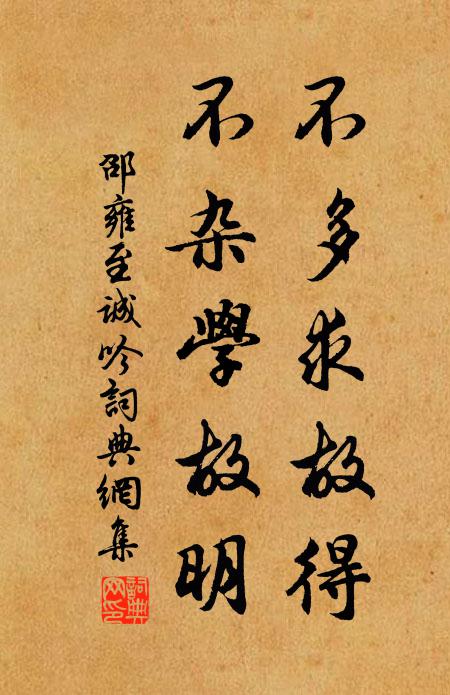 不多求故得
不杂學故明
邵雍至诚吟詞典網集
詞典
网印